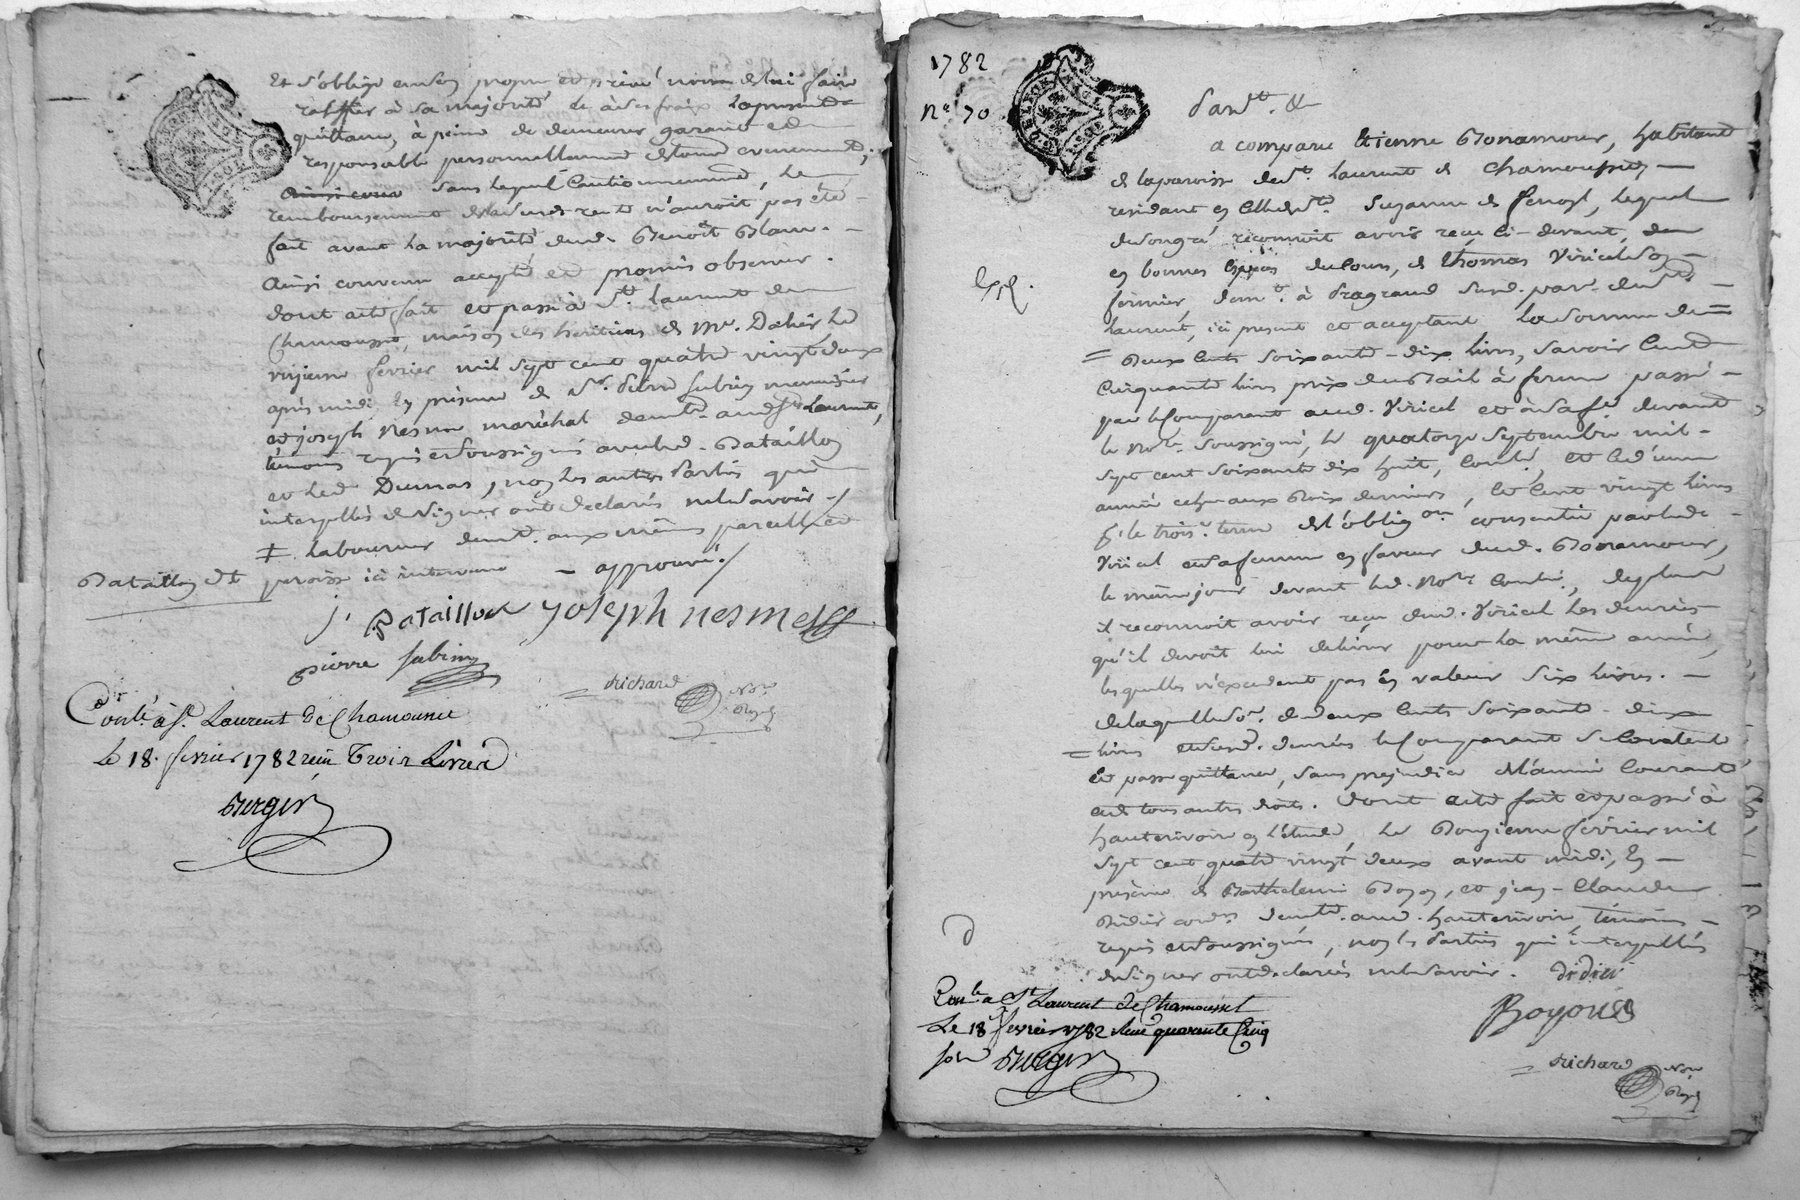 Et s'oblige en son propre et privé nom de lui faire
ratiffier à sa majorité et à ses fraix la presente
quittance, à peine de demeurer garant et
responsable personnellement de tout evenement,
sans lequel Cautionnement, le
remboursement de lad. rente n'auroit pas été
fait avant la majorité dud. Benoît Blanc.
Ainsi convenu accepté et promis observer.
dont acte fait et passé à St. Laurent de
Chamousset, maison des héritiers de Mr.
fevrier mil sept cent quatre vingt deux
après midi, En présence de Sr. Pierre Subrin menuisier
et joseph Nesme maréchal demt. aud. St. Laurent,
témoins requis et soussignés avec led. Bataillon
et led. Dumas, non les autres Parties qui
interpellés de signer ont declarés ne le savoir ./
‡ Laboureur demt. aux mêmes
paroisse ici intervenu - approuvé ./
Bataillon
j. Bataillon joseph nesme
pierre subrin
Richard Nre. Royal
Contlé. à St. Laurent de Chamousset
Le 18. fevrier 1782 reçu Trois Livres
Berger
1782
No. 70
Pardt. &
a comparu Etienne Bonamour, habitant
de la paroisse de St. Laurent de Chamousset
residant en celle de Ste. Suzanne de , lequel
de son gré reconnoit avoir reçu ci-devant,
en bonnes Espèces de Cours, de Thomas Viricel son
fermier, demt. à Pragrand sud. par. de St.
Laurent, ici present et acceptant la somme de
Deux Cents soixante-dix livres, savoir Cent
Cinquante livres prix du Bail à ferme passé
par le Comparant aud. Viricel et à sa fe. devant
le Nore. soussigné, le quatorze septembre mil-
sept cent soixante dix huit, Contlé, et ce d'une
année echue aux Rois derniers, et Cent vingt livres
pr. le trois. terme de l'obligon. consentie par led.
Viricel et sa femme en faveur dud. Bonamour,
le même jour devant led. Nore. Contlé., de plus
il reconnoit avoir reçu dud. Viricel les denrées
qu'il devoit lui delivrer pour la même année,
lesquelles n'excedent pas en valeur six livres.
de laquelle so. de deux Cents soixante-dix
livres et susd. denrées le Comparant se Contente
et passe quittance, sans prejudice de l'année Courante
et de tous autres droits. Dont acte fait et passé à
hauterivoire en l'étude, le Douzieme fevrier mil
sept cent quatre vingt deux avant midi, En
présence de Barthelemi Boyon, et jean-Claude
Didier demt. aud. hauterivoire, témoins
requis et soussignés, non les Parties qui interpellées
de signer ont declarées ne le savoir.
didier
Boyon
Richard Nre. Royal
Contlé. a St. Laurent de Chamousset
Le 18 fevrier 1782 Reçu quarente Cinq
sols Berger